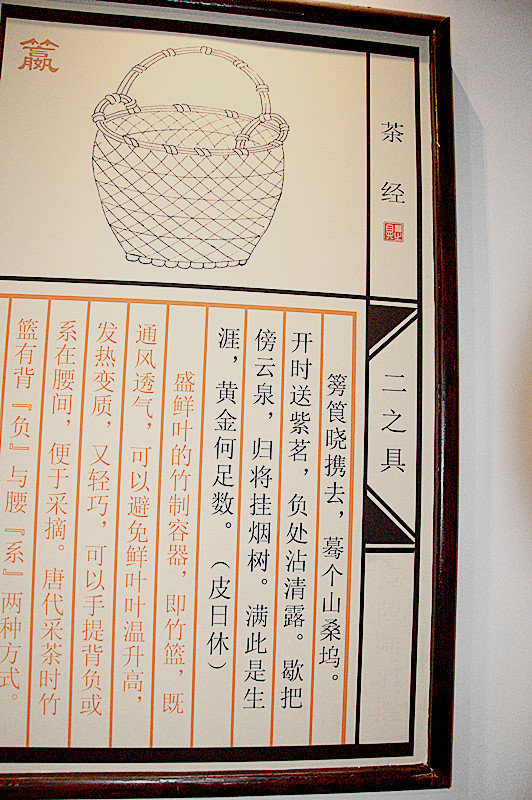 茶经
二之具
篣筤晓携去，蓦个山桑坞。
开时送紫茗，负处沾清露。歇把
傍云泉，归将挂烟树。满此是生
涯，黄金何足数。（皮日休）
盛鲜叶的竹制容器，即竹篮，既
通风透气，可以避免鲜叶叶温升高，
发热变质，又轻巧，可以手提背负或
系在腰间，便于采摘。唐代采茶时竹
篮有背『负』与腰『系』两种方式。